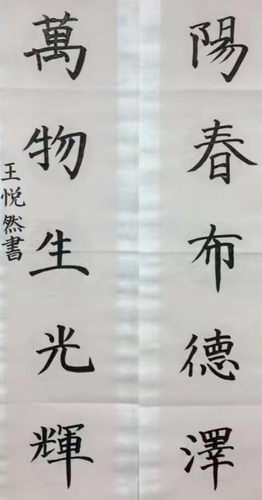 陽春布德澤
萬物生光輝
王悦然書